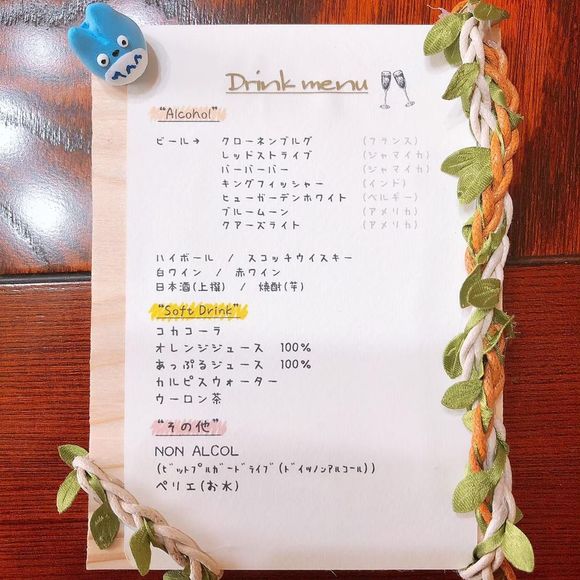 Drink menu
"Alcohol"
ビール→ クローネンブルグ (フランス)
レッドストライプ (ジャマイカ)
バーバーバー (ジャマイカ)
キングフィッシャー (インド)
ヒューガーデンホワイト (ベルギー)
ブルームーン (アメリカ)
クアーズライト (アメリカ)
ハイボール / スコッチウイスキー
白ワイン / 赤ワイン
日本酒(上撰) / 焼酎(芋)
"Soft Drink"
コカコーラ
オレンジジュース 100%
あっぷるジュース 100%
カルピスウォーター
ウーロン茶
"その他"
NON ALCOL
(ﾋﾞｯﾄﾌﾞﾙｶﾞｰﾄﾞﾗｲﾌﾞ(ﾄﾞｲﾂﾉﾝｱﾙｺｰﾙ))
ペリエ(お水)